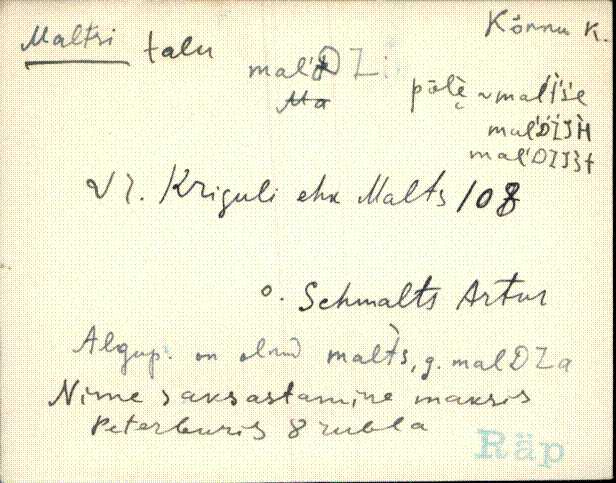 Maltsi talu Kõnnu K.
mal'DZi
Ma
põlè ~ mal't's'e
mal'D'Z'IH
mal'DZIst
Vr. Kriguli ehk Malts 108
o. Schmalts Artur
Algup. on olnud malts, g. malDZa
Nime saksastamine maksis
Peterburis 8 rubla
Räp